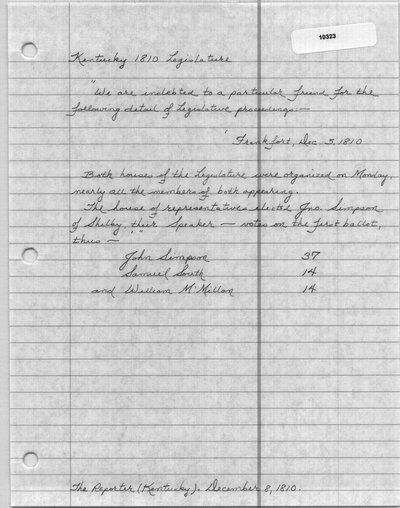 10323
Kentucky 1810 Legislature
"We are indebted to a particular friend for the
following detail of Legislative proceedings:—
Frankfort, Dec. 5, 1810
Both houses of the Legislature were organized on Monday,
nearly all the members of both appearing.
The house of representatives elected Jno. Simpson
of Shelby, their Speaker — votes on the first ballot,
thus —
John Simpson 37
Samuel South 14
and William M'Millan 14
The Reporter (Kentucky). December 8, 1810.